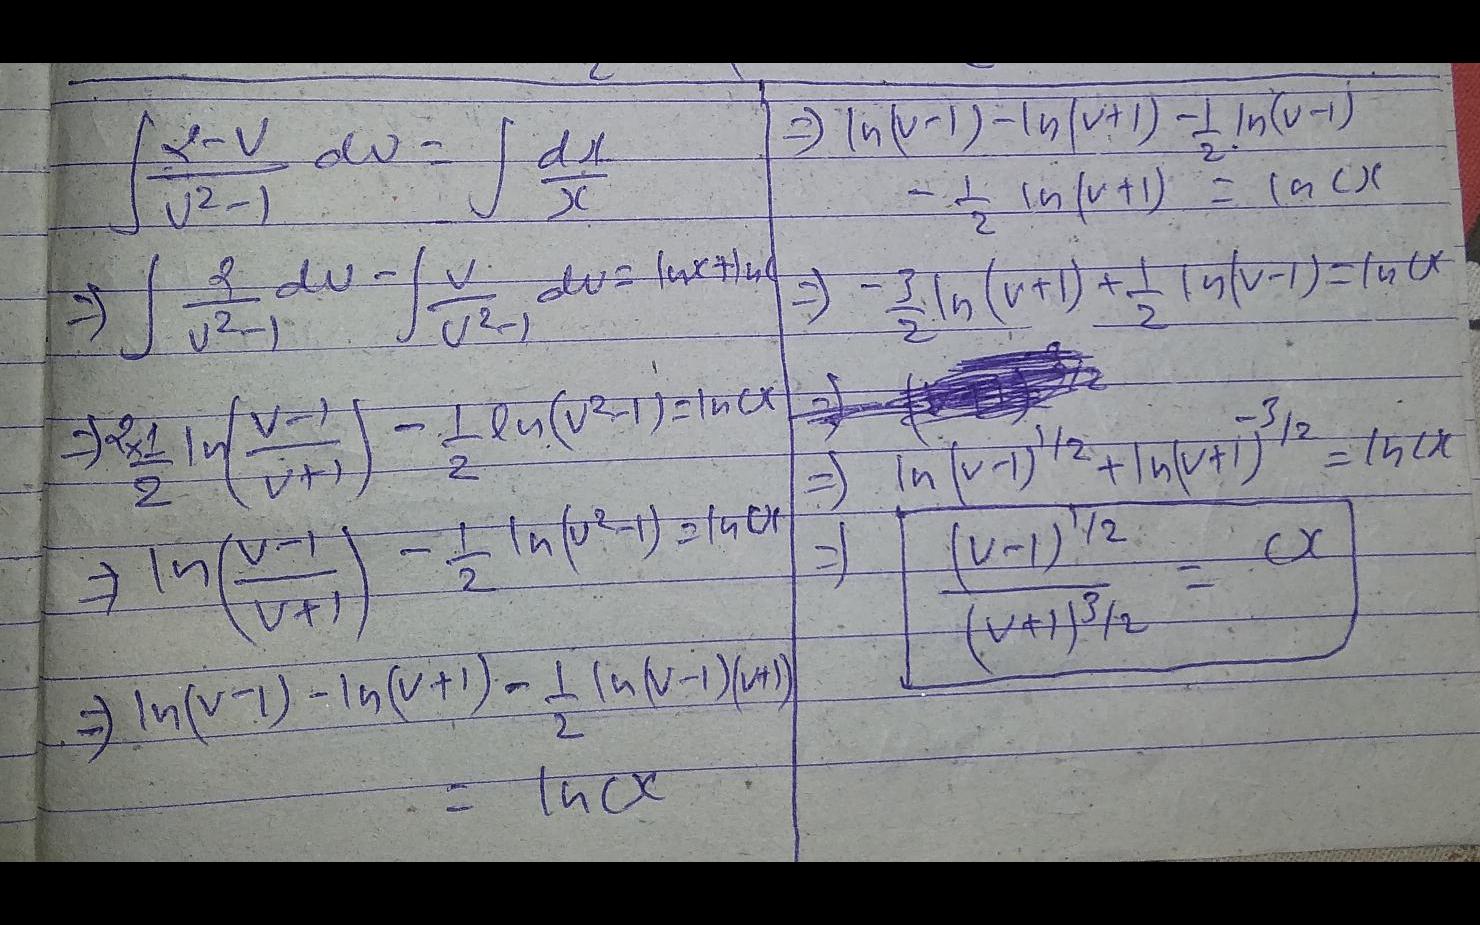 ∫ (2-v)/(v²-1) dv = ∫ dx/x
⇒ ∫ 2/(v²-1) dv - ∫ v/(v²-1) dv = lnx+lnc
⇒ 2×1/2 ln((v-1)/(v+1)) - 1/2 ln(v²-1) = ln cx
⇒ ln((v-1)/(v+1)) - 1/2 ln(v²-1) = ln cx
⇒ ln(v-1) - ln(v+1) - 1/2 ln(v-1)(v+1)
= ln cx
⇒ ln(v-1) - ln(v+1) - 1/2 ln(v-1)
- 1/2 ln(v+1) = ln cx
⇒ -3/2 ln(v+1) + 1/2 ln(v-1) = ln cx
⇒ ln(v-1)^1/2 + ln(v+1)^-3/2 = ln cx
⇒ (v-1)^1/2 / (v+1)^3/2 = cx